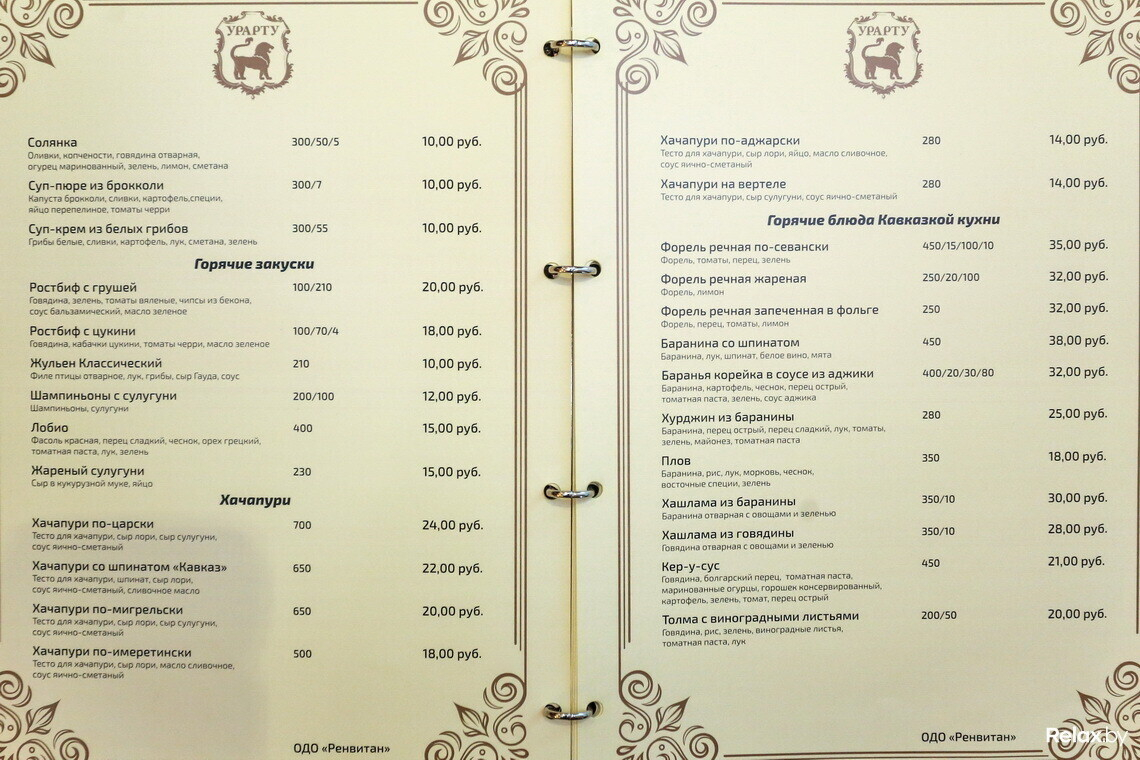 УРАРТУ
Солянка 300/50/5 10,00 руб.
Оливки, копчености, говядина отварная,
огурец маринованный, зелень, лимон, сметана
Суп-пюре из брокколи 300/7 10,00 руб.
Капуста брокколи, сливки, картофель,специи,
яйцо перепелиное, томаты черри
Суп-крем из белых грибов 300/55 10,00 руб.
Грибы белые, сливки, картофель, лук, сметана, зелень
Горячие закуски
Ростбиф с грушей 100/210 20,00 руб.
Говядина, зелень, томаты вяленые, чипсы из бекона,
соус бальзамический, масло зеленое
Ростбиф с цукини 100/70/4 18,00 руб.
Говядина, кабачки цукини, томаты черри, масло зеленое
Жульен Классический 210 10,00 руб.
Филе птицы отварное, лук, грибы, сыр Гауда, соус
Шампиньоны с сулугуни 200/100 12,00 руб.
Шампиньоны, сулугуни
Лобио 400 15,00 руб.
Фасоль красная, перец сладкий, чеснок, орех грецкий,
томатная паста, лук, зелень
Жареный сулугуни 230 15,00 руб.
Сыр в кукурузной муке, яйцо
Хачапури
Хачапури по-царски 700 24,00 руб.
Тесто для хачапури, сыр лори, сыр сулугуни,
соус яично-сметаный
Хачапури со шпинатом «Кавказ» 650 22,00 руб.
Тесто для хачапури, шпинат, сыр лори,
соус яично-сметаный, сливочное масло
Хачапури по-мигрельски 650 20,00 руб.
Тесто для хачапури, сыр лори, сыр сулугуни,
соус яично-сметаный
Хачапури по-имеретински 500 18,00 руб.
Тесто для хачапури, сыр лори, масло сливочное,
соус яично-сметаный
ОДО «Ренвитан»
УРАРТУ
Хачапури по-аджарски 280 14,00 руб.
Тесто для хачапури, сыр лори, яйцо, масло сливочное,
соус яично-сметаный
Хачапури на вертеле 280 14,00 руб.
Тесто для хачапури, сыр сулугуни, соус яично-сметаный
Горячие блюда Кавказкой кухни
Форель речная по-севански 450/15/100/10 35,00 руб.
Форель, томаты, перец, зелень
Форель речная жареная 250/20/100 32,00 руб.
Форель, лимон
Форель речная запеченная в фольге 250 32,00 руб.
Форель, перец, томаты, лимон
Баранина со шпинатом 450 38,00 руб.
Баранина, лук, шпинат, белое вино, мята
Баранья корейка в соусе из аджики 400/20/30/80 32,00 руб.
Баранина, картофель, чеснок, перец острый,
томатная паста, зелень, соус аджика
Хурджин из баранины 280 25,00 руб.
Баранина, перец острый, перец сладкий, лук, томаты,
зелень, майонез, томатная паста
Плов 350 18,00 руб.
Баранина, рис, лук, морковь, чеснок,
восточные специи, зелень
Хашлама из баранины 350/10 30,00 руб.
Баранина отварная с овощами и зеленью
Хашлама из говядины 350/10 28,00 руб.
Говядина отварная с овощами и зеленью
Кер-у-сус 450 21,00 руб.
Говядина, болгарский перец, томатная паста,
маринованные огурцы, горошек консервированный,
картофель, зелень, томат, перец острый
Толма с виноградными листьями 200/50 20,00 руб.
Говядина, рис, зелень, виноградные листья,
томатная паста, лук
ОДО «Ренвитан»
Relax.by